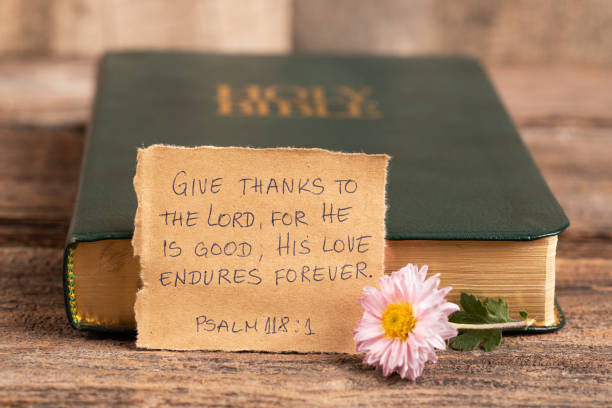 HOLY
BIBLE
GIVE THANKS TO
THE LORD, FOR HE
IS GOOD; HIS LOVE
ENDURES FOREVER.
PSALM 118:1